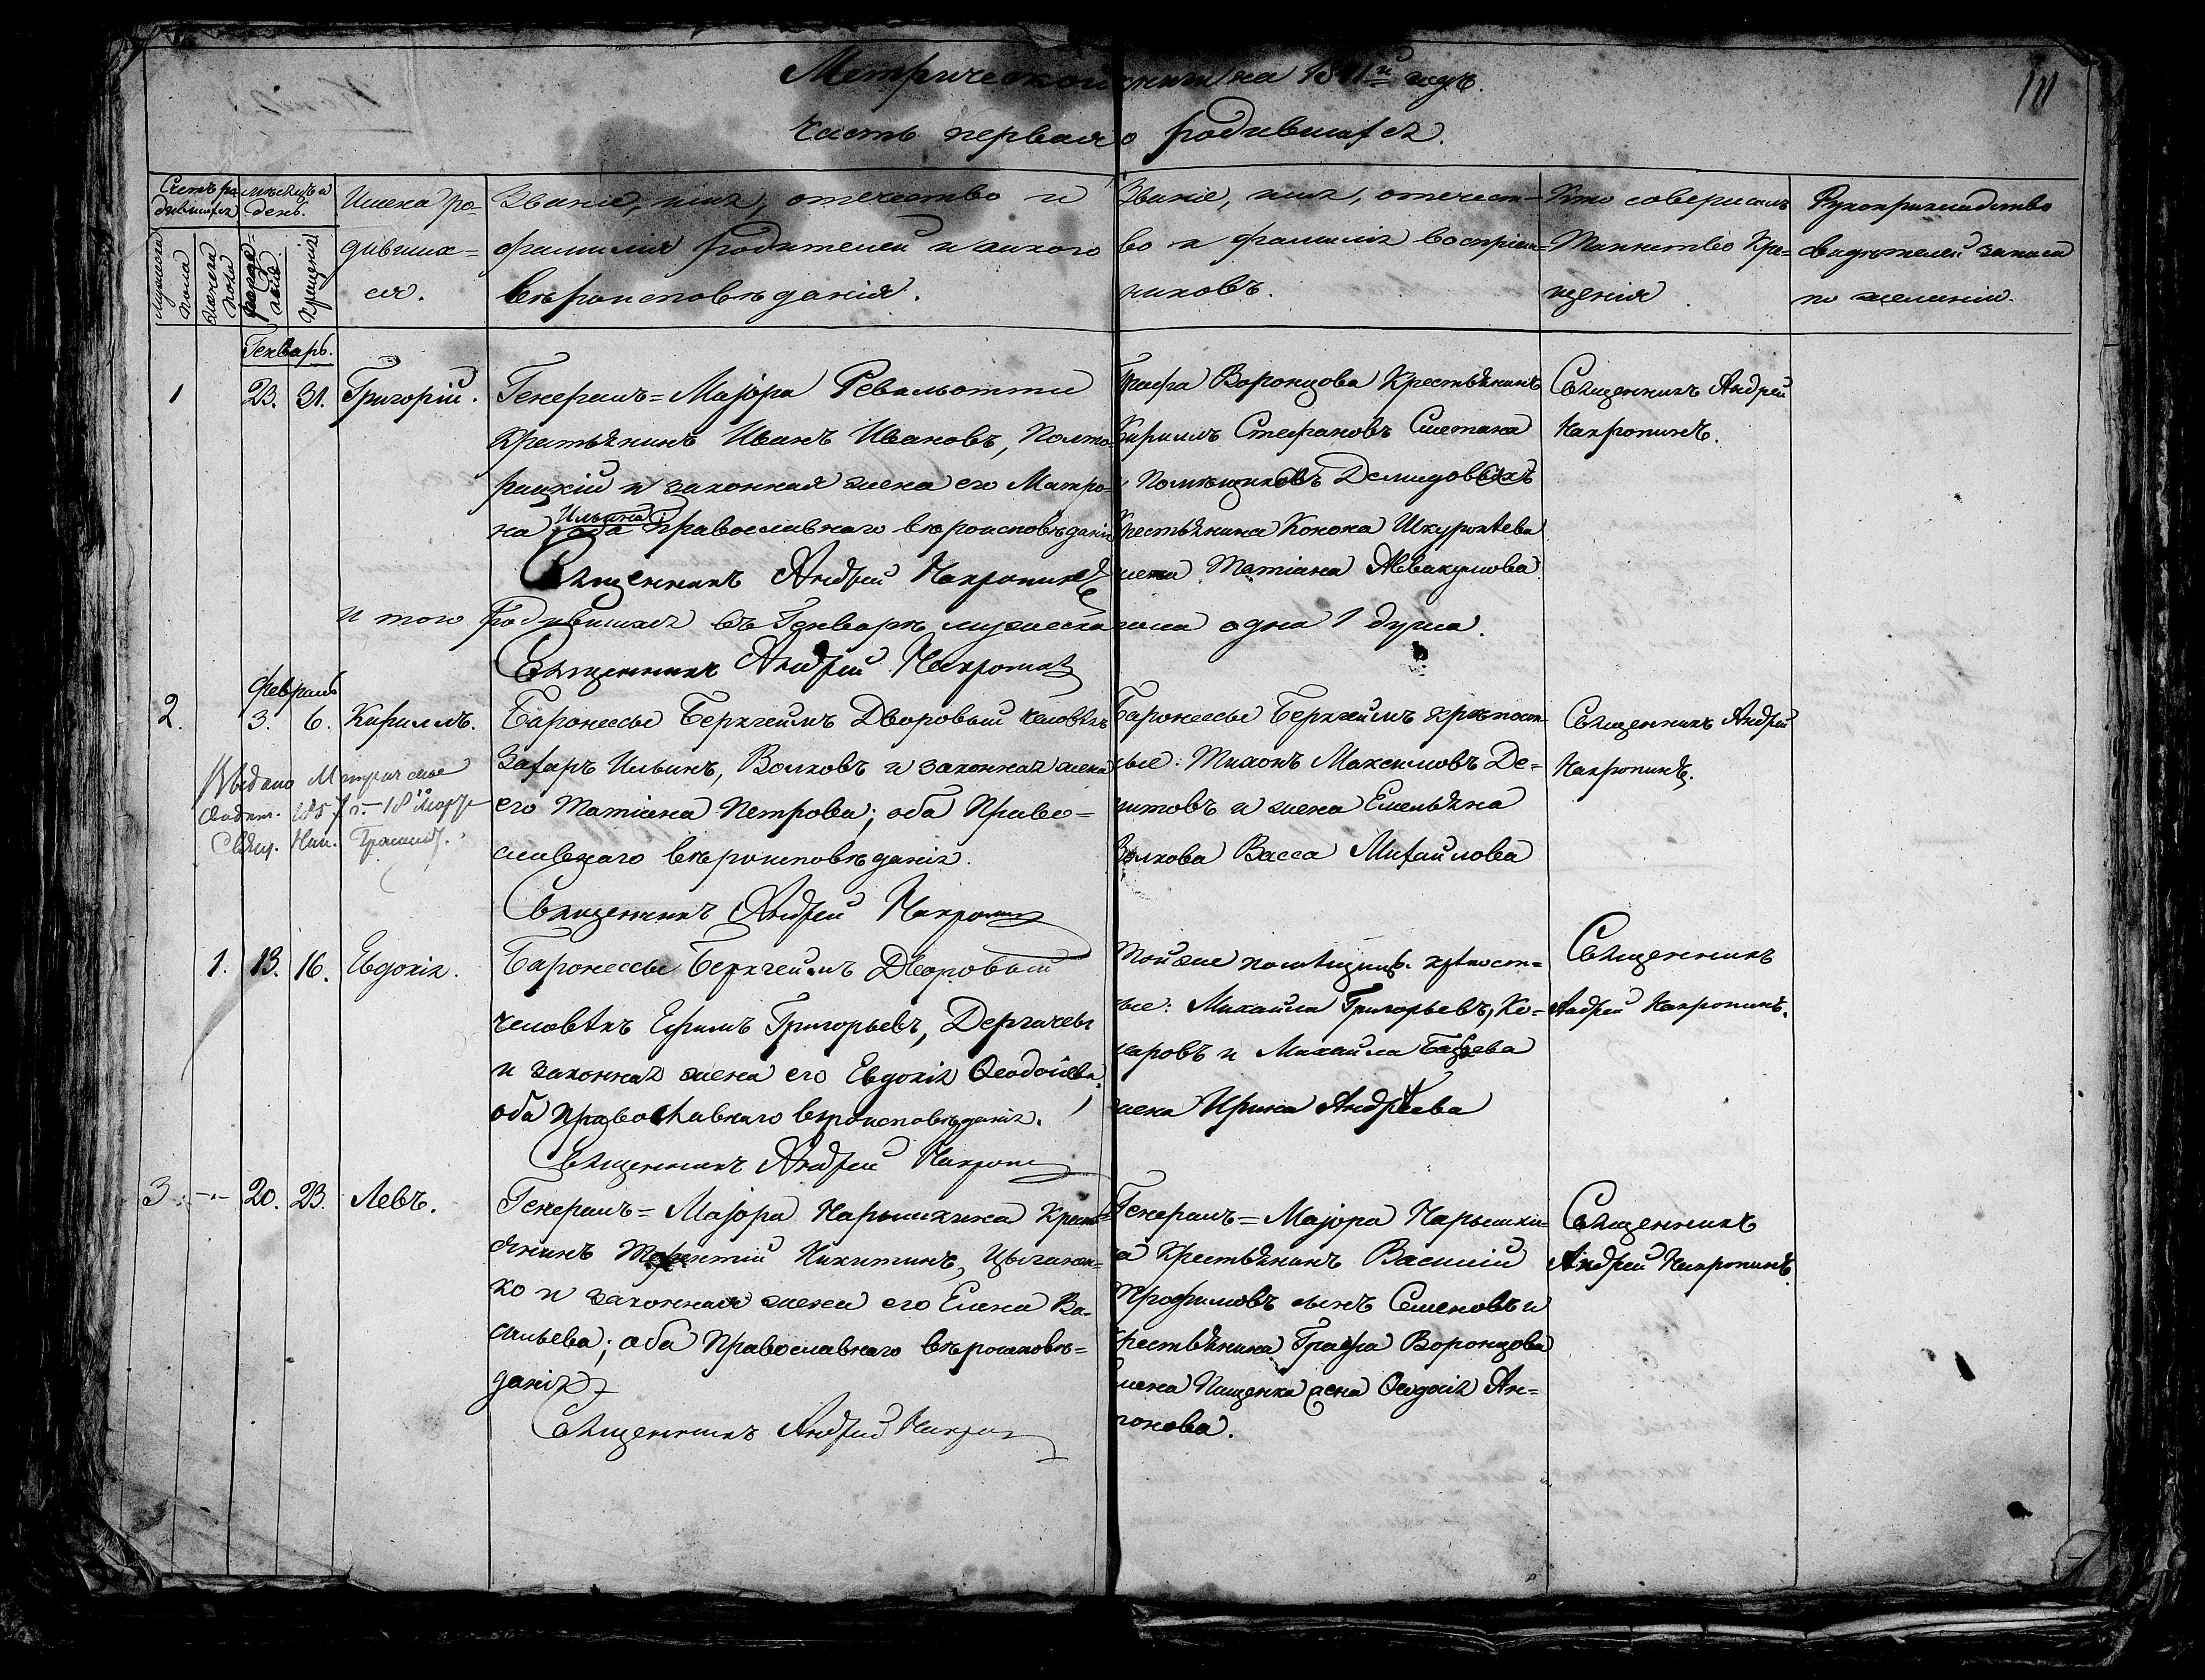 Метрической книги на 1841й годъ.
111
Часть первая о родившихся.
Счетъ ро-
дившихся
Мужеска пола
Женска пола
мѣсяцъ и
день.
рожде-
нія
крещенія
Имена ро-
дивших=
ся.
Званіе, имя, отечество и
фамилія родителей и какого
вѣроисповѣданія.
Званіе, имя, отечест-
во и фамилія воспріем-
никовъ.
Кто совершалъ
Таинство Кре=
щенія.
Рукоприкладство
свидѣтелей записи
по желанію.
Генварь.
1 23. 31. Григорій.
Генералъ=Маjора Ревелиотти
Крестьянинъ Иванъ Ивановъ, Полто-
рацкій и законная жена его Матро-
на Ильина оба православнаго вѣроисповѣданія
Священникъ Андрей Накропинъ
Графа Воронцова Крестьянинъ
Кириллъ Стефановъ Сметана
и Помѣщиковъ Демидовыхъ
Крестьянина Конона
жена Татіана Аввакумова
Священникъ Андрей
Накропинъ.
и того родившихся въ Генварѣ мужеска пола одна 1 душа.
Священникъ Андрей Накропинъ
Февраль
2. 3. 6. Кириллъ.
Выдано Метрическое
Свящ. Ник.
Баронессы Беркгеимъ Дворовый человѣкъ
Захаръ Ильинъ, Волковъ и законная жена
его Татіана Петрова; оба Право=
славнаго вѣроисповѣданія.
Священникъ Андрей Накропинъ
Баронессы Беркгеимъ крѣпост-
ные: Тихонъ Максимовъ Де=
нитовъ и жена Емельяна
Волкова Васса Михайлова
Священникъ Андрей
Накропинъ.
1. 13. 16. Евдокія.
Баронессы Беркгеимъ Дворовый
человѣкъ Ефимъ Григорьевъ, Дергачевъ
и законная жена его Евдокія
оба православнаго вѣроисповѣданія.
Священникъ Андрей Накропинъ
Тойже помѣщицы крѣпост=
ные: Михайла Григорьевъ, Ко=
маровъ и Михайла
жена Ирина Андрѣева
Священникъ
Андрей Накропинъ.
3. 20. 23. Левъ.
Генералъ=Маjора Нарышкина Кресть-
янинъ Терентій Никитинъ, Цыганен-
ко и законная жена его Елена Ва-
сильева; оба Православнаго вѣроисповѣ=
данія
Священникъ Андрей Накропинъ
Генералъ=Маjора Нарышки=
на Крестьянинъ Василій
Трофимовъ сынъ Семеновъ и
крестьянина Графа Воронцова
Пищенка жена Ѳеодосія Ан=
тонова.
Священникъ
Андрей Накропинъ.